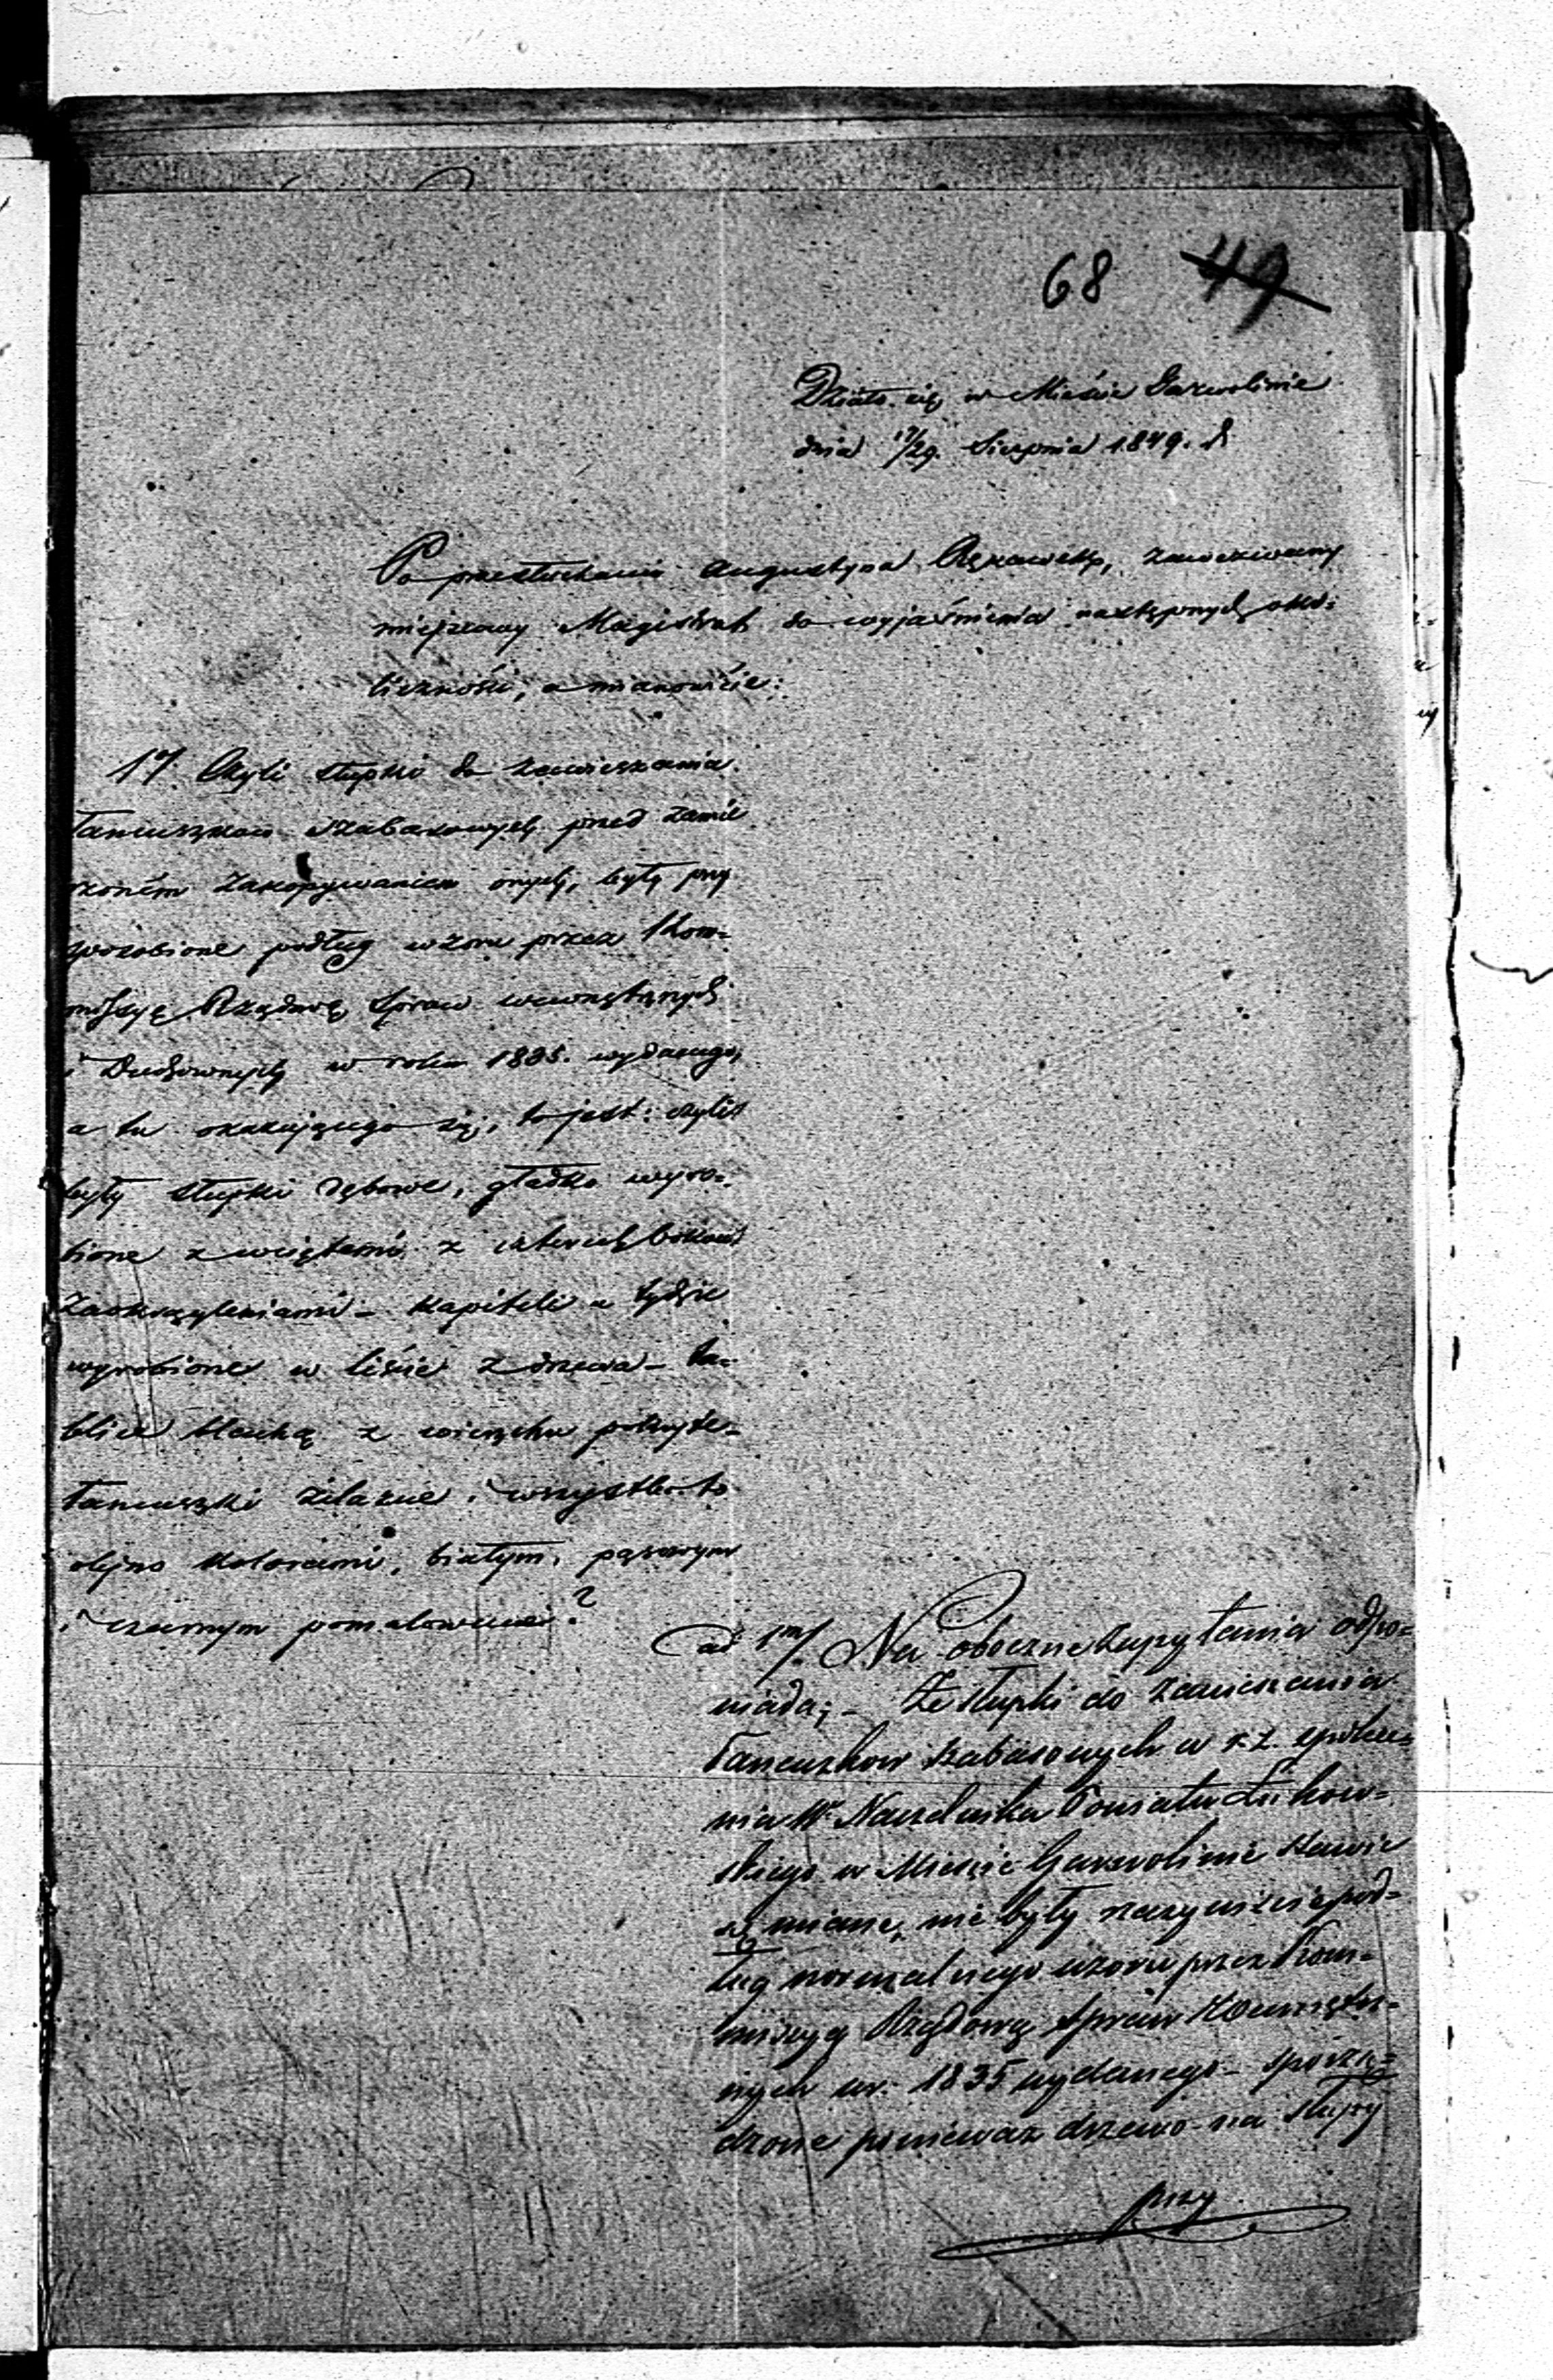 68 49
Działo się w Mieście Garwolinie
dnia 17/29. Sierpnia 1849. r
Po przesłuchaniu Augustyna zawezwany
miejscowy Magistrat do wyjaśnienia następnych oko=
liczności, a mianowicie:
1º/ Czyli słupki do zawieszania
łancuszkow szabasowych przed zamie
rzoném zakopywaniem onych, były przy
sposobione podług wzoru przez Kom=
missyę Rządową Spraw wewnętrznych
i Duchownych w roku 1835. wydanego,
a tu okazującego się, to jest: czyli
były słupki dębowe, gładko wyro=
bione z wciętemi z czterech boków
zaokrągleniami – kapiteli a tydzie
wyrobione w liście z drzewa – ta=
blice blachą z wierzchu pokryte –
łancuszki żelazne i wszystko to
olejno kolorami, białym, pąsowym
i czarnym pomalowane?
ad 1m/. Na oboczne zapytania odpo=
wiada; – Że słupki do zawieszania
łancuszkow szabasowych w
nia W. Naczelnika Powiatu Łukow=
skiego w Mieście Garwolinie stawić
się miane, nie były rzeczywiście pod=
ług normalnego wzoru przez Kom=
missyą Rządową Spraw Wewnętrz=
nych w r: 1835 wydanego – sporzą=
dzone ponieważ drzewo na słupy
przy